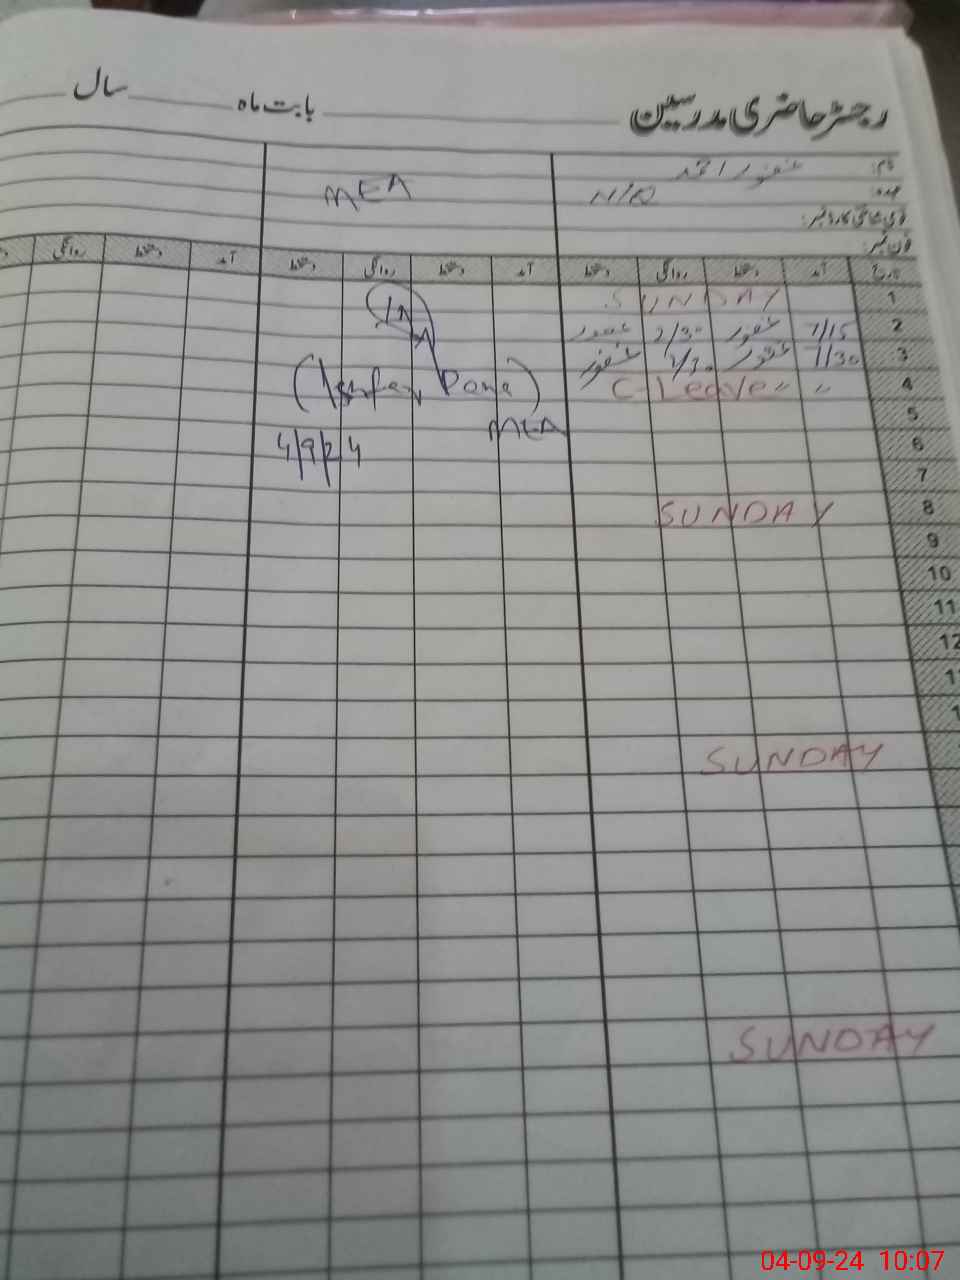 رجسٹر حاضری مدرسین بابت ماہ سال
نام: غفور احمد
عہدہ: N/Q MEA
قومی شناختی کارڈ نمبر:
فون نمبر:
تاریخ آمد دستخط روانگی دستخط آمد دستخط روانگی دستخط آمد دستخط روانگی
1 SUNDAY
2 7/15 غفور 1/30 غفور
3 7/30 غفور 1/30 غفور
4 C-Leave " "
5
MEA
6
4/9/24
7
8 SUNDAY
9
10
11
12
SUNDAY
SUNDAY
04-09-24 10:07